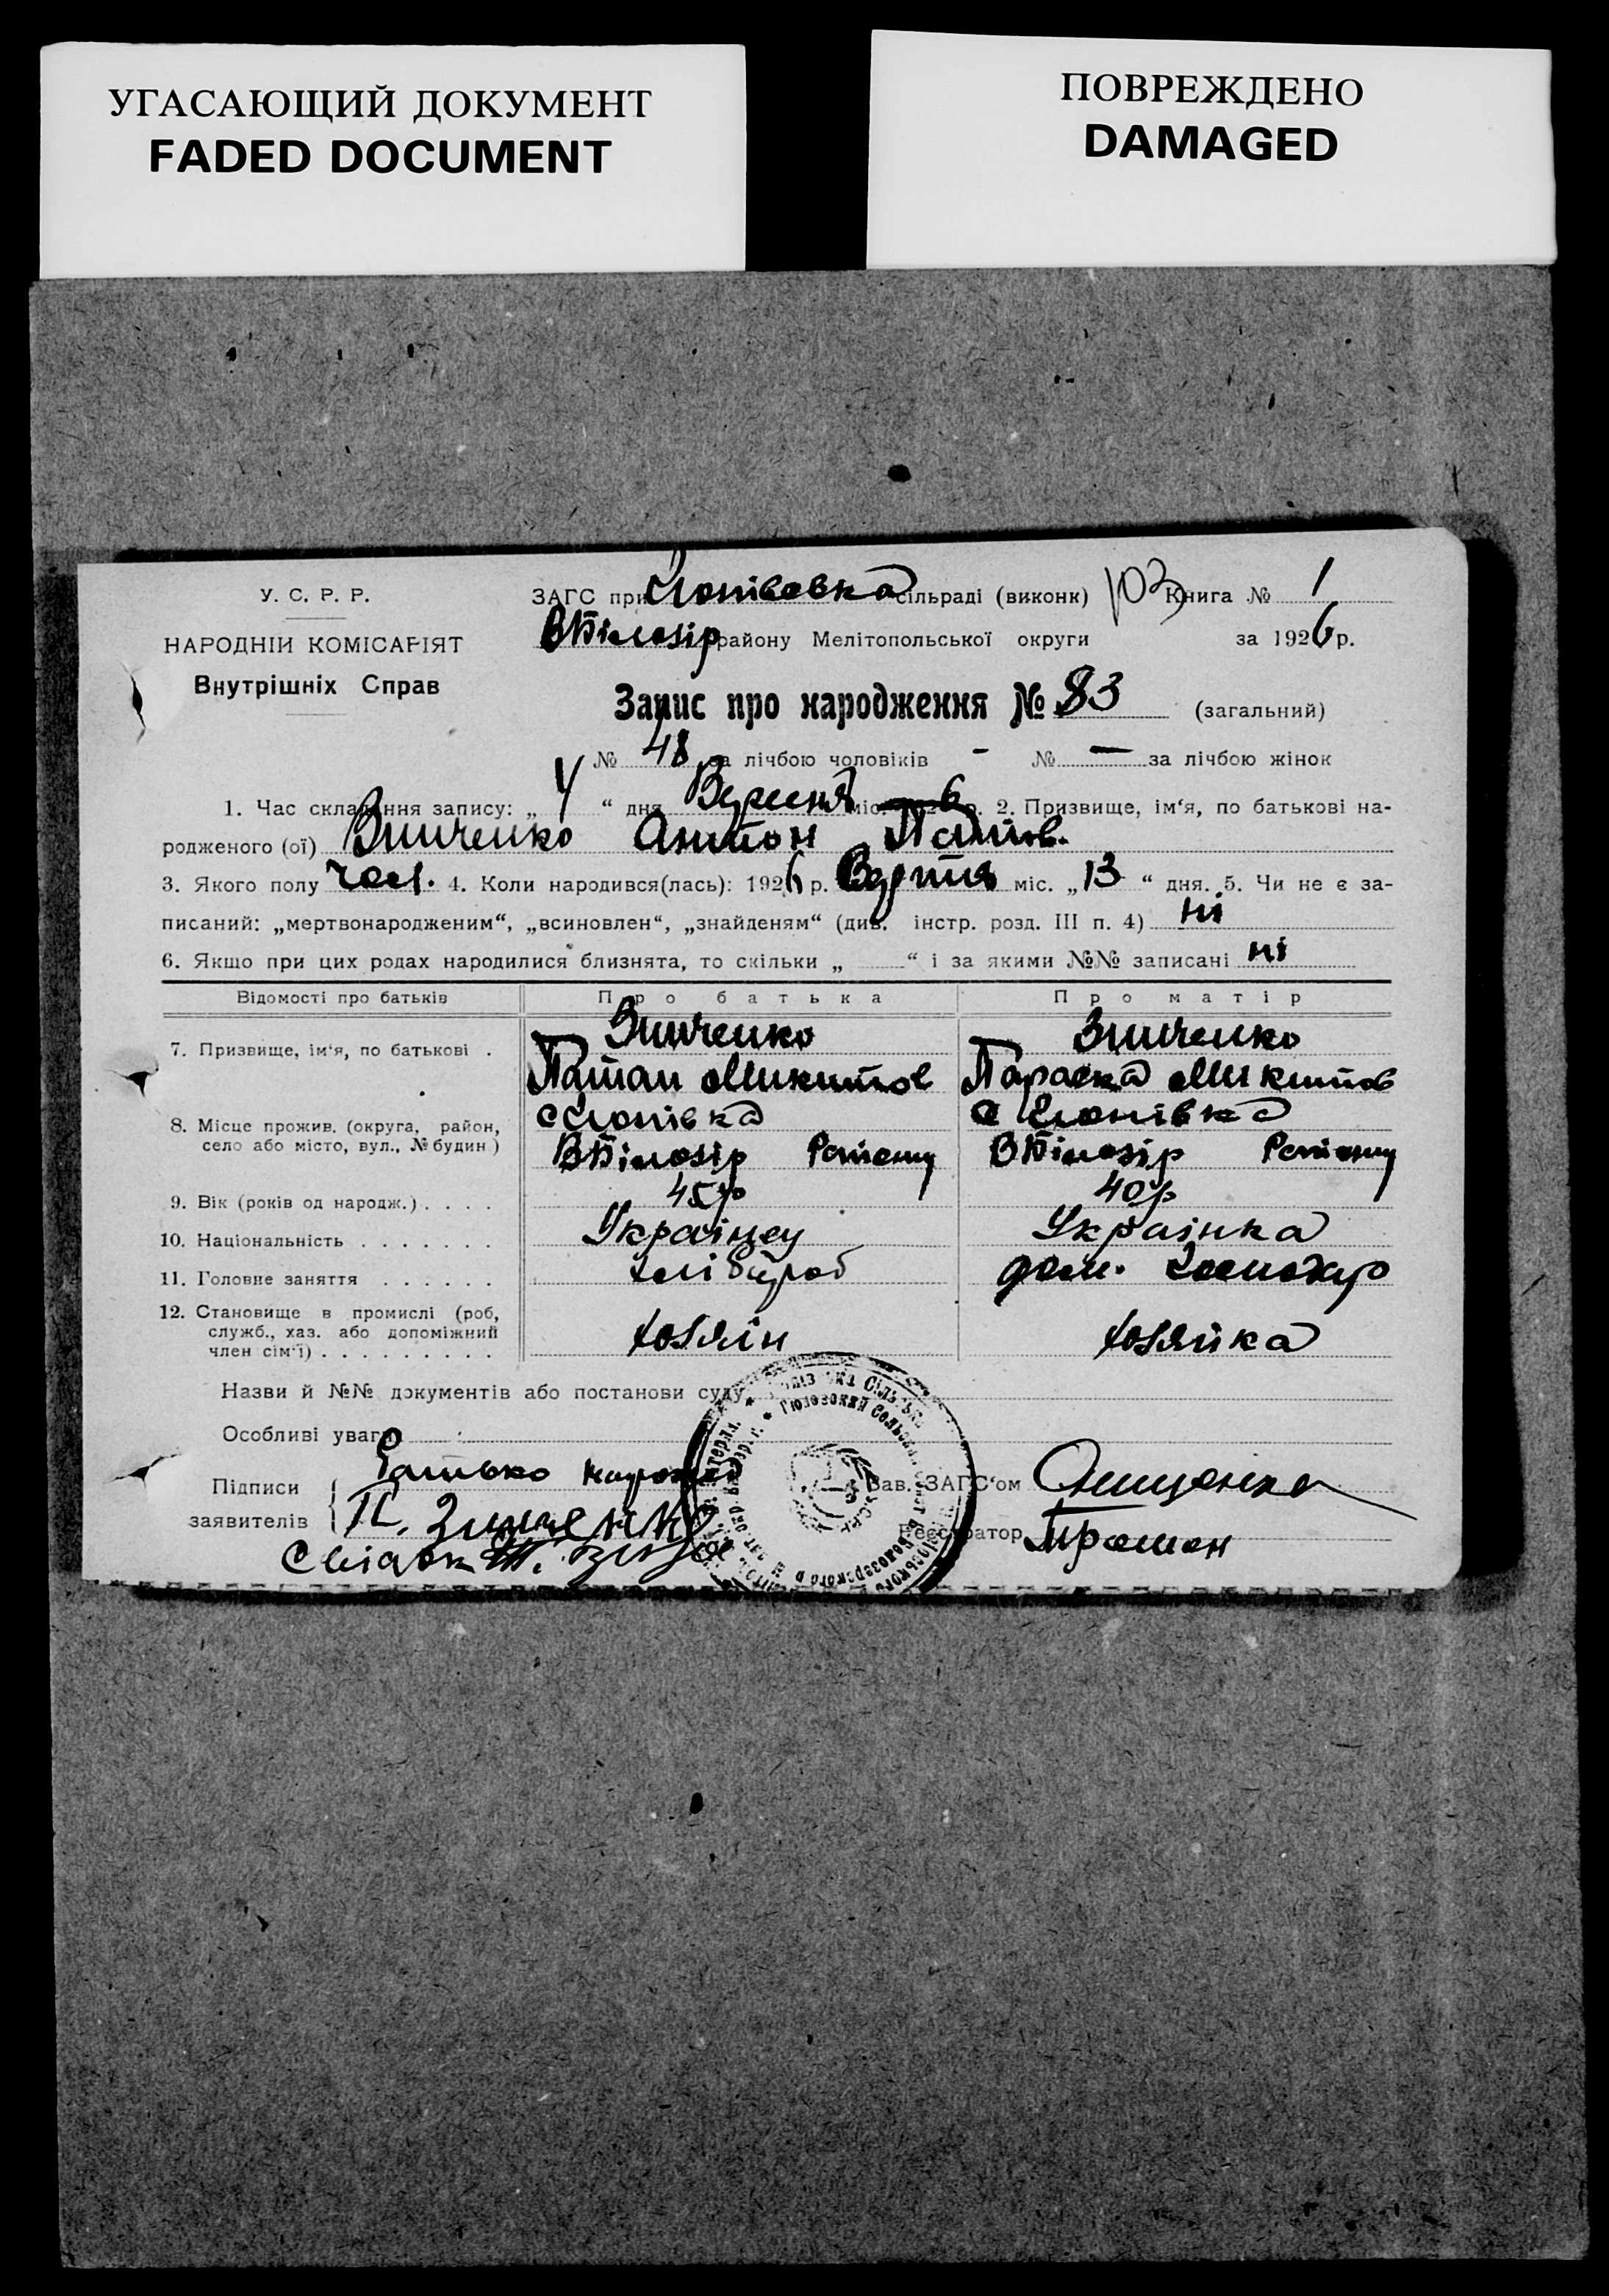 УГАСАЮЩИЙ ДОКУМЕНТ
FADED DOCUMENT
ПОВРЕЖДЕНО
DAMAGED
У. С. Р. Р.
НАРОДНІЙ КОМІСАРІЯТ
Внутрішніх Справ
ЗАГС при сільраді (виконк) 103 Книга № 1
ВБілозір району Мелітопольської округи за 1926 р.
Запис про народження № 83 (загальний)
№ 48 за лічбою чоловіків - № — за лічбою жінок
1. Час складання запису: „ 4 “ дня Вересня міс. 1926 р. 2. Призвище, ім‘я, по батькові на-
родженого (ої) Зинченко Антон
3. Якого полу чол. 4. Коли народився(лась): 1926 р. міс. „ 13 “ дня. 5. Чи не є за-
писаний: „мертвонародженим“, „всиновлен“, „знайденям“ (див. інстр. розд. III п. 4) ні
6. Якшо при цих родах народилися близнята, то скільки „ “ і за якими №№ записані ні
Відомості про батьків Про батька Про матір
7. Призвище, ім‘я, по батькові . Зинченко Зинченко
Микитов Параска Микитов
8. Місце прожив. (округа, район,
село або місто, вул., № будин )
ВБілозір Району ВБілозір Району
9. Вік (років од народж.) . . . . 45р 40р
10. Національність . . . . . . . Українец Украінка
11. Головне заняття . . . . . . хлібороб дом. господар
12. Становище в промислі (роб,
служб., хаз. або допоміжний
член сім‘ї) . . . . . . . . . хозяїн хозяйка
Назви й №№ документів або постанови суду
Особливі уваги
Підписи
заявителів
Батько
П. Зинченко
Свідок
Зав. ЗАГС‘ом Онищенко
Реєстратор